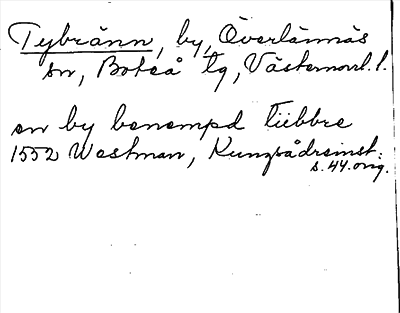 Tybränn, by, Överlännäs
sn, Boteå tg, Västernorrl. l.
en by benempd Tiibbre
1552 Westman, Kungsådreinst.
s. 44. orig.